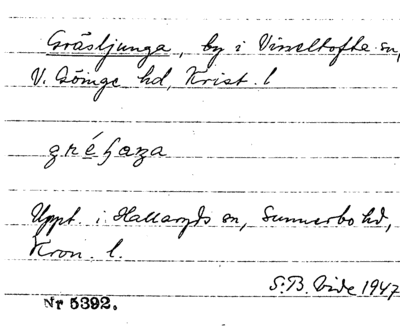 Gräsljunga, by i Vinslöfs sn,
V. Göinge hd, Krist. l
Uppt. i Hallaryds sn, Sunnerbo hd,
Kron. l.
S.B. Vide 1947
Nr 5392.